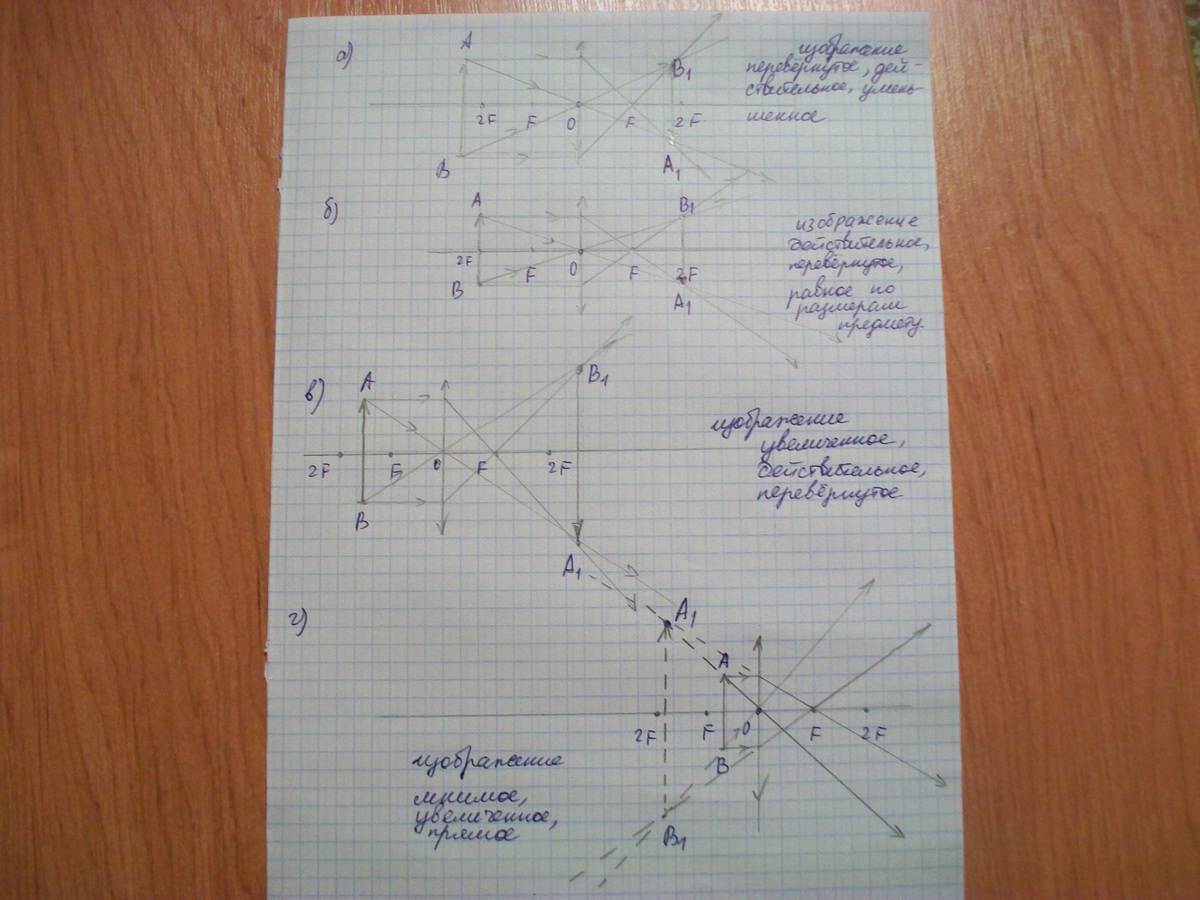 а)
A
B
2F F O F 2F
B1
A1
изображение
перевёрнутое, дей-
ствительное, умень-
шенное
б)
A
B
2F F O F 2F
B1
A1
изображение
действительное,
перевёрнутое,
равное по
размерам
предмету.
в)
A
B
2F F O F 2F
B1
A1
изображение
увеличенное,
действительное,
перевёрнутое
г)
A1
A
2F F O F 2F
B
B1
изображение
мнимое,
увеличенное,
прямое